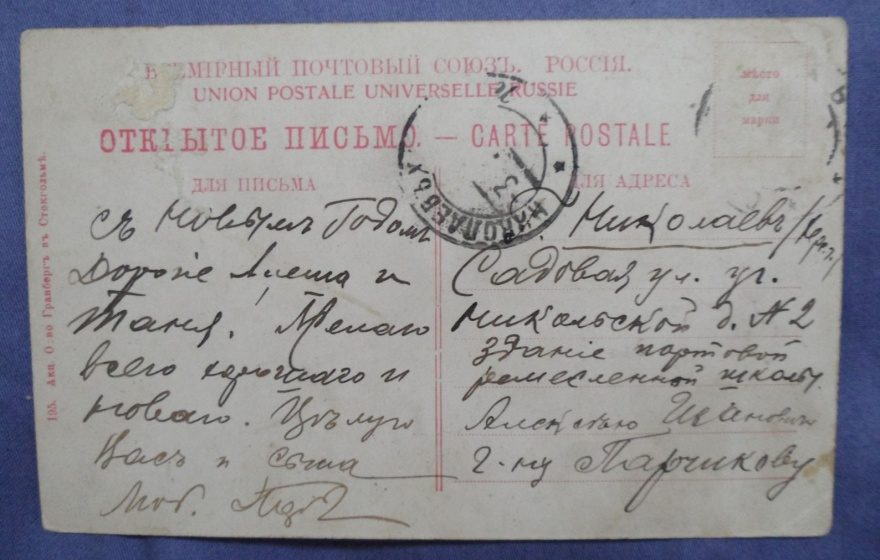 ВСЕМІРНЫЙ ПОЧТОВЫЙ СОЮЗЪ. РОССІЯ.
UNION POSTALE UNIVERSELLE RUSSIE
ОТКРЫТОЕ ПИСЬМО. — CARTE POSTALE
мѣсто
для
марки
ДЛЯ ПИСЬМА
ДЛЯ АДРЕСА
НИКОЛАЕВЪ Х
195. Акц. О-во Гранбергъ въ Стокгольмѣ.
съ Новымъ Годомъ
Дорогіе Алеша и
Таня! Желаю
всего хорошаго и
новаго. Цѣлую
Васъ и сына
Люб.
Николаевъ
Садовая ул. уг.
Никольской д. № 2
зданіе портовой
ремесленной школы
Алексѣю Ивановичу
г-ну Парчикову